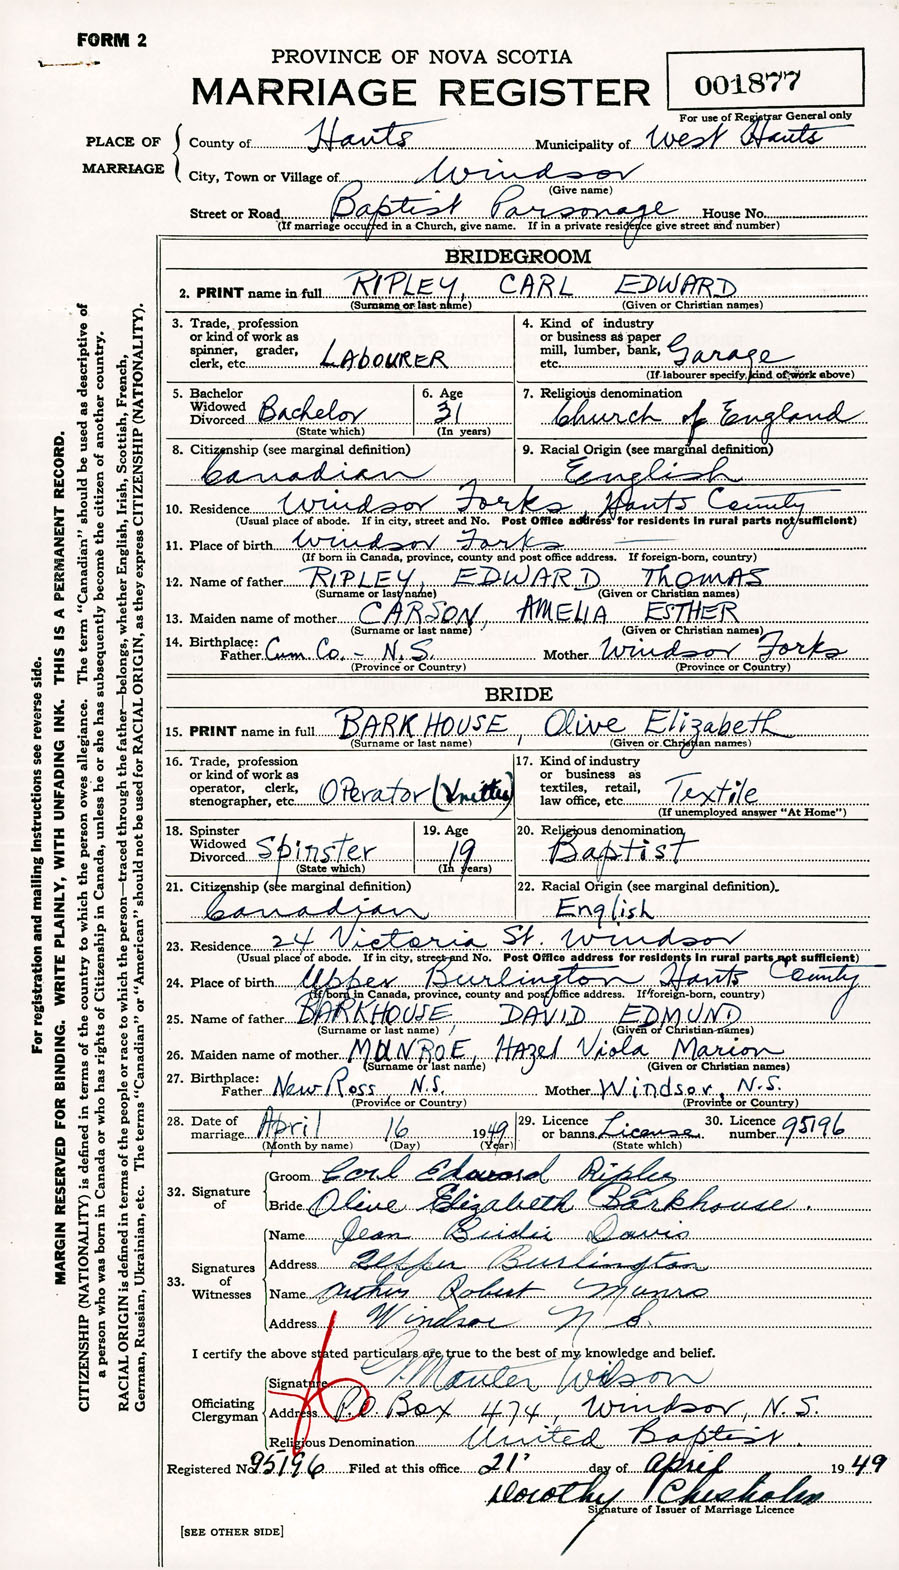 FORM 2
PROVINCE OF NOVA SCOTIA
MARRIAGE REGISTER
001877
For use of Registrar General only
PLACE OF MARRIAGE
County of Hants Municipality of West Hants
City, Town or Village of Windsor
(Give name)
Street or Road Baptist Parsonage House No.
(If marriage occurred in a Church, give name. If in a private residence give street and number)
BRIDEGROOM
2. PRINT name in full RIPLEY, CARL EDWARD
(Surname or last name) (Given or Christian names)
3. Trade, profession
or kind of work as
spinner, grader,
clerk, etc. LABOURER
4. Kind of industry
or business as paper
mill, lumber, bank,
etc. Garage
(If labourer specify kind of work above)
5. Bachelor
Widowed
Divorced Bachelor
(State which)
6. Age
31
(In years)
7. Religious denomination
Church of England
8. Citizenship (see marginal definition)
Canadian
9. Racial Origin (see marginal definition)
English
10. Residence Windsor Forks, Hants County
(Usual place of abode. If in city, street and No. Post Office address for residents in rural parts not sufficient)
11. Place of birth Windsor Forks
(If born in Canada, province, county and post office address. If foreign-born, country)
12. Name of father RIPLEY, EDWARD THOMAS
(Surname or last name) (Given or Christian names)
13. Maiden name of mother CARSON, AMELIA ESTHER
(Surname or last name) (Given or Christian names)
14. Birthplace:
Father Cum Co. - N.S. Mother Windsor Forks
(Province or Country) (Province or Country)
BRIDE
15. PRINT name in full BARKHOUSE, Olive Elizabeth
(Surname or last name) (Given or Christian names)
16. Trade, profession
or kind of work as
operator, clerk,
stenographer, etc. OPerator (Knitter)
17. Kind of industry
or business as
textiles, retail,
law office, etc. Textile
(If unemployed answer "At Home")
18. Spinster
Widowed
Divorced Spinster
(State which)
19. Age
19
(In years)
20. Religious denomination
Baptist
21. Citizenship (see marginal definition)
Canadian
22. Racial Origin (see marginal definition).
English
23. Residence 24 Victoria St. Windsor
(Usual place of abode. If in city, street and No. Post Office address for residents in rural parts not sufficient)
24. Place of birth Upper Burlington Hants County
(If born in Canada, province, county and post office address. If foreign-born, country)
25. Name of father BARKHOUSE, DAVID EDMUND
(Surname or last name) (Given or Christian names)
26. Maiden name of mother MUNROE, Hazel Viola Marion
(Surname or last name) (Given or Christian names)
27. Birthplace:
Father New Ross, N.S. Mother Windsor, N.S.
(Province or Country) (Province or Country)
28. Date of
marriage April 16 1949
(Month by name) (Day) (Year)
29. Licence
or banns License
(State which)
30. Licence
number 95196
32. Signature
of
Groom Carl Edward Ripley
Bride Olive Elizabeth Barkhouse.
33. Signatures
of
Witnesses
Name Jean Davis
Address Upper Burlington
Name Arthur Robert Munro
Address Windsor N S.
I certify the above stated particulars are true to the best of my knowledge and belief.
Officiating
Clergyman
Signature Manter Wilson
Address P.O. Box 474, Windsor, N.S.
Religious Denomination United Baptist.
Registered No. 95196 Filed at this office 21 day of April 1949
Dorothy Chisholm
Signature of Issuer of Marriage Licence
[SEE OTHER SIDE]
For registration and mailing instructions see reverse side.
MARGIN RESERVED FOR BINDING. WRITE PLAINLY, WITH UNFADING INK. THIS IS A PERMANENT RECORD.
CITIZENSHIP (NATIONALITY) is defined in terms of the country to which the person owes allegiance. The term "Canadian" should be used as descriptive of
a person who was born in Canada or who has rights of Citizenship in Canada, unless he or she has subsequently become the citizen of another country.
RACIAL ORIGIN is defined in terms of the people or race to which the person—traced through the father—belongs, whether English, Irish, Scottish, French,
German, Russian, Ukrainian, etc. The terms "Canadian" or "American" should not be used for RACIAL ORIGIN, as they express CITIZENSHIP (NATIONALITY).